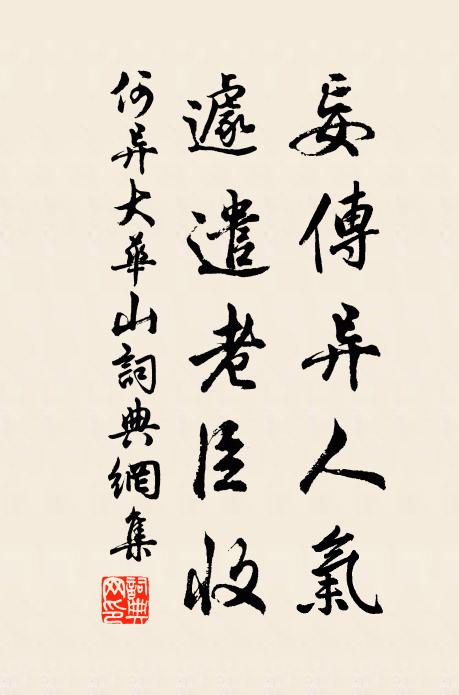 妄傳异人氣
遽遣老臣收
何异大華山詞典網集
詞典网印